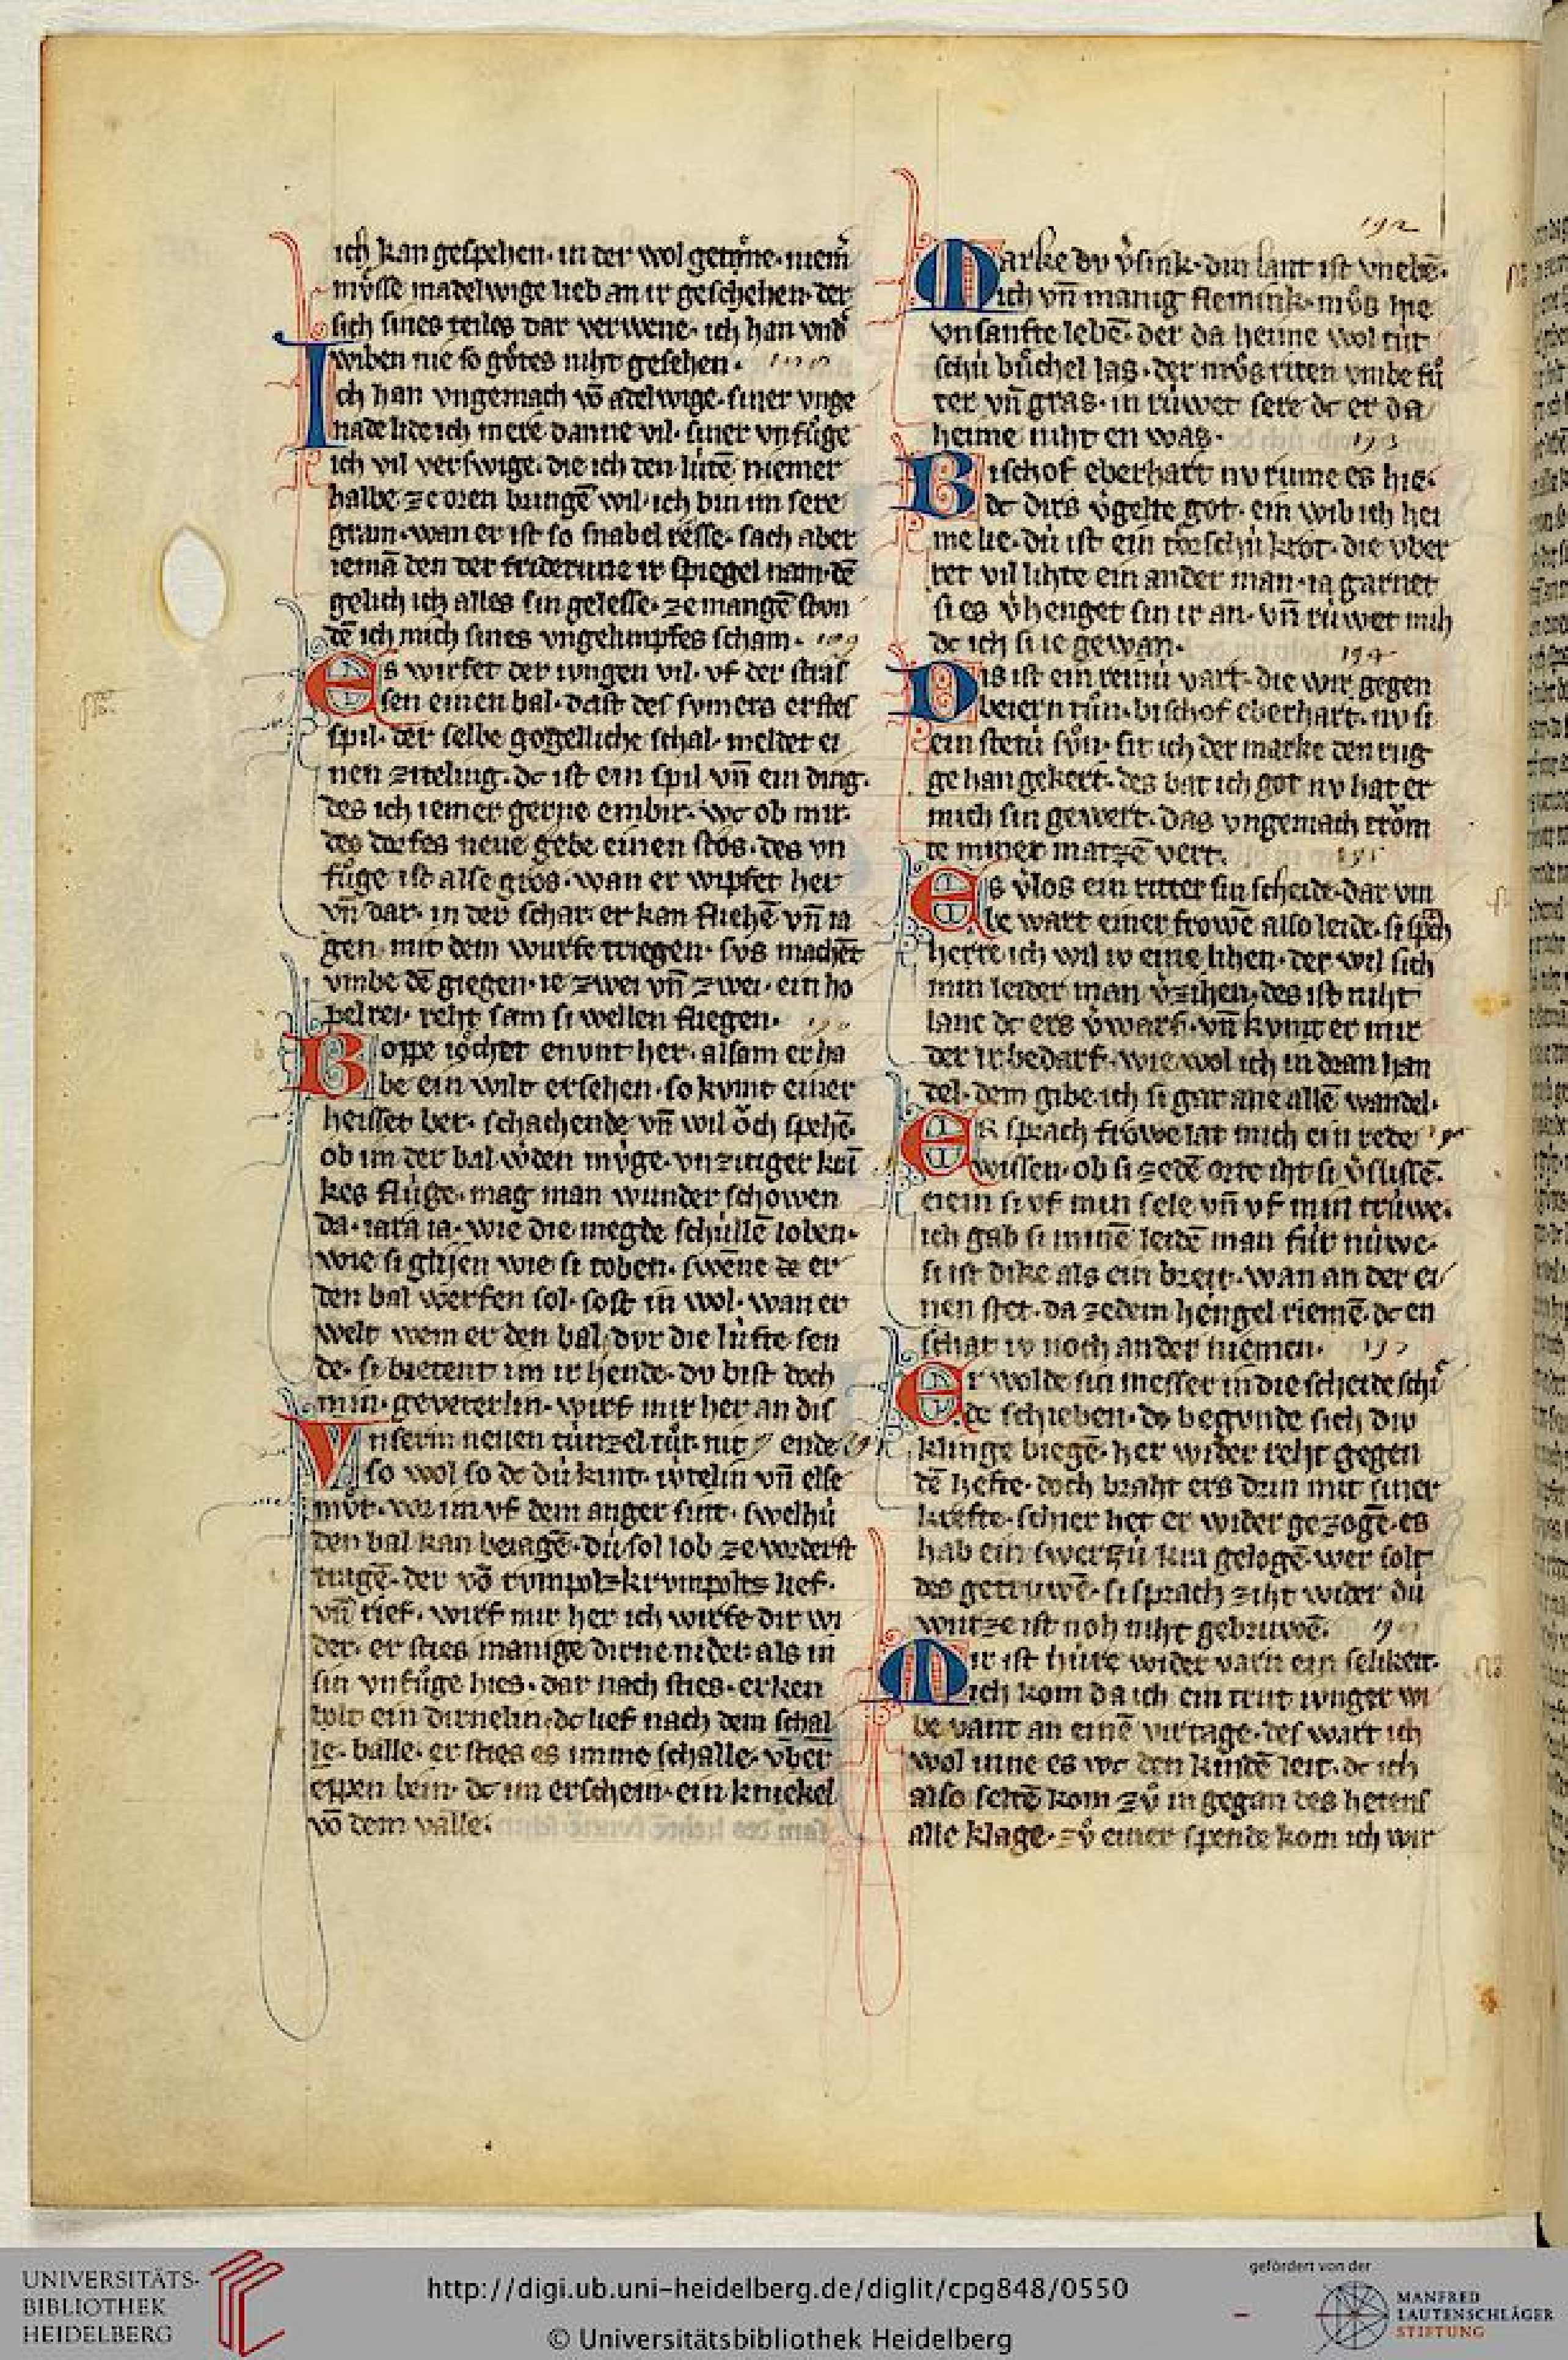 ich kan gespehen· in der wol getᷠne· niem̄
mv̊sse madelwige lieb an ir geschehen· der
sich sines teiles dar verwene· ich han vnd̾
wiben nie so gůtes niht gesehen·
Ich han vngemach vō adelwige· siner vnge
nade lide ich mere danne vil· siner vnfůge
ich vil verswige· die ich den lútē niemer
halbe ze oren bringē wil· ich bin im sere
gram· wan er ist so snabel resse· sach aber
iemā den der friderune ir spiegel nam· dē
gelich ich alles sin gelesse· ze mangē ston
dē ich mich sines vngelimpfes scham·
Es wirfet der iungen vil· vf der stras
sen einen bal· dc̄ ist des svmers erstes
spil· der selbe gogelliche schal· meldet ei
nen ziteling· dc ist ein spil vn̄ ein ding·
des ich iemer gerne embir· wc ob mir
des dorfes neue gebe einen stos· des vn
fůge ist alse gros· wan er wipfet her
vn̄ dar· in der schar· er kan fliehē vn̄ ia
gen· mit dem wurfe triegen· svs machet
vmbe dē giegen· ie zwei vn̄ zwei· ein ho
pelrei· reht sam si wellen fliegen·
Boppe iöchet enunt her· alsam er ha
be ein wilt ersehen· so kvmt einer
heisset ber· schachende vn̄ wil öch spehē·
ob im der bal w̾den mvge· vnzitiger krī
kes flúge· mag man wunder schowen
da· iara ia· wie die megde schúllē loben·
wie si glijen wie si toben· swēne ze er
den bal werfen sol· sost in wol· wan er
welt wem er den bal· dvr die lúfte sen
de· si bietent im ir hende· dv bist doch
min· geveterlin· wirf mir her an dis ende
Vnserm neuen túnzel tůt· nit
so wol so dc dú kint· ivtelin vn̄ else
mv̊t· vor im vf dem anger sint· swelhú
den bal kan beiagē· dú sol lob ze vorderst
tragē· der vō rvmpolz krvmpolts lief·
vn̄ rief· wirf mir her ich wirfe dir wi
der· er sties manige dirne nider als in
sin vnfůge hies· dar nach sties· erken
bolt ein dirnelin· dc lief nach dem schal
le· balle· er sties es imme schalle· v̊ber
eppen bein· dc im erschein· ein knickel
vō dem valle·
192
Marke dv v̾sink· din lant ist vnebē·
Mich vn̄ manig flemink· mv̊s hie
vnsanfte lebē· der da heime wol tút
schú bůchel las· der mv̊s riten vmbe fů
ter vn̄ gras· in rúwet sere dc er da
heime niht en was·
193
Bischof eberhart nv rume es hie·
dc dirs v̾gelte got· ein wib ich hei
me lie· dú ist ein törschú krot· die vber
ret vil lihte ein ander man· ia garnet
si es v̾henget sin ir an· vn̄ rúwet mih
dc ich si ie gewan·
194
Dis ist ein reinú vart· die wir gegen
beiern tůn· bischof eberhart· nv si
ein stetú sv̊n· sit ich der marke den rug
ge han gekert· des bat ich got nv hat er
mich sin gewert· das vngemach tröm
te miner matzē vert·
Es v̾los ein ritter sin scheide· dar vm
be wart einer frowē also leide· si sp̄ch
herre ich wil iv eine lihen· der wil sich
min leider man v̾zihen· des ist niht
lanc dc ers v̾warf· vn̄ kvmt er mir
der ir bedarf· wie wol ich in dran han
del· dem gibe ich si gar ane allē wandel·
Er sprach frowe lat mich ein rede
wissen· ob si ze dē orte iht si v̾slissē·
nein si vf min sele vn̄ vf min trúwe·
ich gab si minē leidē man fúr núwe·
si ist dike als ein bret· wan an der ei
nen stet· da ze dem hengel riemē· dc en
schat iv noch ander niemen·
Er wolde sin messer in die scheide schi
de schieben· do begvnde sich div
klinge biegē· her wider reht gegen
dē hefte· doch braht ers drin mit siner
krefte· schier het er wider gezogē· es
hab ein swerzú kra gelogē· wer solt
des getruwē· si sprach ziht wider dú
wurze ist noh niht gebruwē·
Mir ist húre wider varn ein selikeit·
ich kom da ich ein trut iunger wi
be vant an einē virtage· des wart ich
wol inne es wc den kindē leit· dc ich
also seltē kom zů in gegan des herens
alle klage· zů einer spende kom ich wir
UNIVERSITÄTS-
BIBLIOTHEK
HEIDELBERG
http://digi.ub.uni-heidelberg.de/diglit/cpg848/0550
© Universitätsbibliothek Heidelberg
gefördert von der
MANFRED
LAUTENSCHLÄGER
STIFTUNG